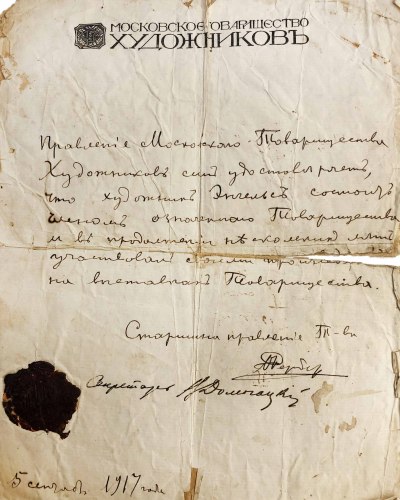 МОСКОВСКОЕ ТОВАРИЩЕСТВО
ХУДОЖНИКОВЪ
Правленіе Московскаго Товарищества
Художников сим удостоверяет,
что художник Энгельс состоит
членом означеннаго Товарищества
и в продолжении нескольких лет
участвовал своими
на выставках Товарищества.
Старшина правления Т-ва
Секретарь Домогацкий
5 сентября 1917 года